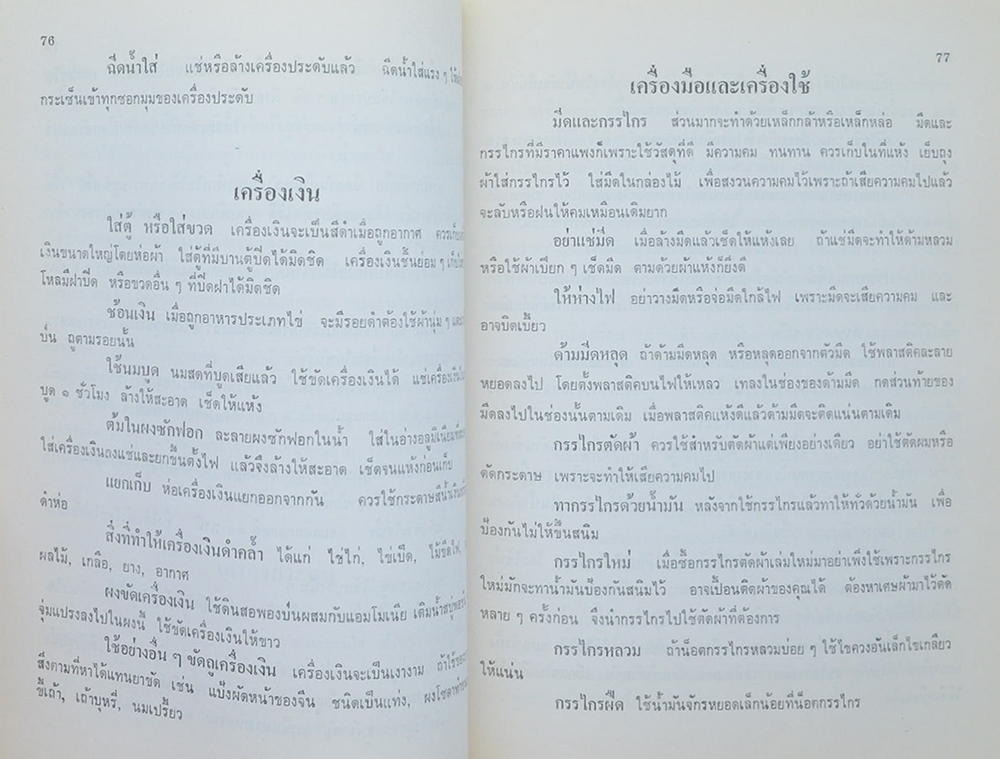 76
ฉีดน้ำใส่ แช่หรือล้างเครื่องประดับแล้ว ฉีดน้ำใส่แรง ๆ
กระเซ็นเข้าทุกซอกมุมของเครื่องประดับ
เครื่องเงิน
ใส่ตู้ หรือใส่ขวด เครื่องเงินจะเป็นสีดำเมื่อถูกอากาศ
เงินขนาดใหญ่โดยห่อผ้า ใส่ตู้ที่มีบานตู้ปิดได้มิดชิด เครื่องเงินชิ้นย่อม ๆ
โหลมีฝาปิด หรือขวดอื่น ๆ ที่ปิดฝาได้มิดชิด
ช้อนเงิน เมื่อถูกอาหารประเภทไข่ จะมีรอยดำต้องใช้ผ้านุ่ม ๆ
ป่น ถูตามรอยนั้น
ใช้นมบูด นมสดที่บูดเสียแล้ว ใช้ขัดเครื่องเงินได้ แช่เครื่องเงิน
บูด ๑ ชั่วโมง ล้างให้สะอาด เช็ดให้แห้ง
ต้มในผงซักฟอก ละลายผงซักฟอกในน้ำ ใส่ในอ่างอลูมิเนียม
ใส่เครื่องเงินลงแช่และยกขึ้นตั้งไฟ แล้วจึงล้างให้สะอาด เช็ดจนแห้งก่อนเก็บ
แยกเก็บ ห่อเครื่องเงินแยกออกจากกัน ควรใช้กระดาษสีน้ำเงิน
ดำห่อ
สิ่งที่ทำให้เครื่องเงินดำคล้ำ ได้แก่ ไข่ไก่, ไข่เป็ด, ไม้ขีดไฟ,
ผลไม้, เกลือ, ยาง, อากาศ
ผงขัดเครื่องเงิน ใช้ดินสอพองป่นผสมกับแอมโมเนีย เติมน้ำสบู่
จุ่มแปรงลงไปในผงนี้ ใช้ขัดเครื่องเงินให้ขาว
ใช้อย่างอื่น ๆ ขัดถูเครื่องเงิน เครื่องเงินจะเป็นเงางาม
สิ่งตามที่หาได้แทนยาขัด เช่น แป้งผัดหน้าของจีน ชนิดเป็นแท่ง,
ขี้เถ้า, เถ้าบุหรี่, นมเปรี้ยว
77
เครื่องมือและเครื่องใช้
มีดและกรรไกร ส่วนมากจะทำด้วยเหล็กกล้าหรือเหล็กหล่อ มีดและ
กรรไกรที่มีราคาแพงก็เพราะใช้วัสดุที่ดี มีความคม ทนทาน ควรเก็บในที่แห้ง เย็บถุง
ผ้าใส่กรรไกรไว้ ใส่มีดในกล่องไม้ เพื่อสงวนความคมไว้เพราะถ้าเสียความคมไปแล้ว
จะลับหรือฝนให้คมเหมือนเดิมยาก
อย่าแช่มีด เมื่อล้างมีดแล้วเช็ดให้แห้งเลย ถ้าแช่มีดจะทำให้ด้ามหลวม
หรือใช้ผ้าเปียก ๆ เช็ดมีด ตามด้วยผ้าแห้งก็ยิ่งดี
ให้ห่างไฟ อย่าวางมีดหรือจ่อมีดใกล้ไฟ เพราะมีดจะเสียความคม และ
อาจบิดเบี้ยว
ด้ามมีดหลุด ถ้าด้ามมีดหลุด หรือหลุดออกจากตัวมีด ใช้พลาสติคละลาย
หยอดลงไป โดยตั้งพลาสติคบนไฟให้เหลว เทลงในช่องของด้ามมีด กดส่วนท้ายของ
มีดลงไปในช่องนั้นตามเดิม เมื่อพลาสติคแห้งดีแล้วด้ามมีดจะติดแน่นตามเดิม
กรรไกรตัดผ้า ควรใช้สำหรับตัดผ้าแต่เพียงอย่างเดียว อย่าใช้ตัดผมหรือ
ตัดกระดาษ เพราะจะทำให้เสียความคมไป
ทากรรไกรด้วยน้ำมัน หลังจากใช้กรรไกรแล้วทาให้ทั่วด้วยน้ำมัน เพื่อ
ป้องกันไม่ให้ขึ้นสนิม
กรรไกรใหม่ เมื่อซื้อกรรไกรตัดผ้าเล่มใหม่มาอย่าเพิ่งใช้เพราะกรรไกร
ใหม่มักจะทาน้ำมันป้องกันสนิมไว้ อาจเปื้อนติดผ้าของคุณได้ ต้องหาเศษผ้ามาไว้ตัด
หลาย ๆ ครั้งก่อน จึงนำกรรไกรไปใช้ตัดผ้าที่ต้องการ
กรรไกรหลวม ถ้าน็อตกรรไกรหลวมบ่อย ๆ ใช้ไขควงอันเล็กไขเกลียว
ให้แน่น
กรรไกรฝืด ใช้น้ำมันจักรหยอดเล็กน้อยที่น็อตกรรไกร